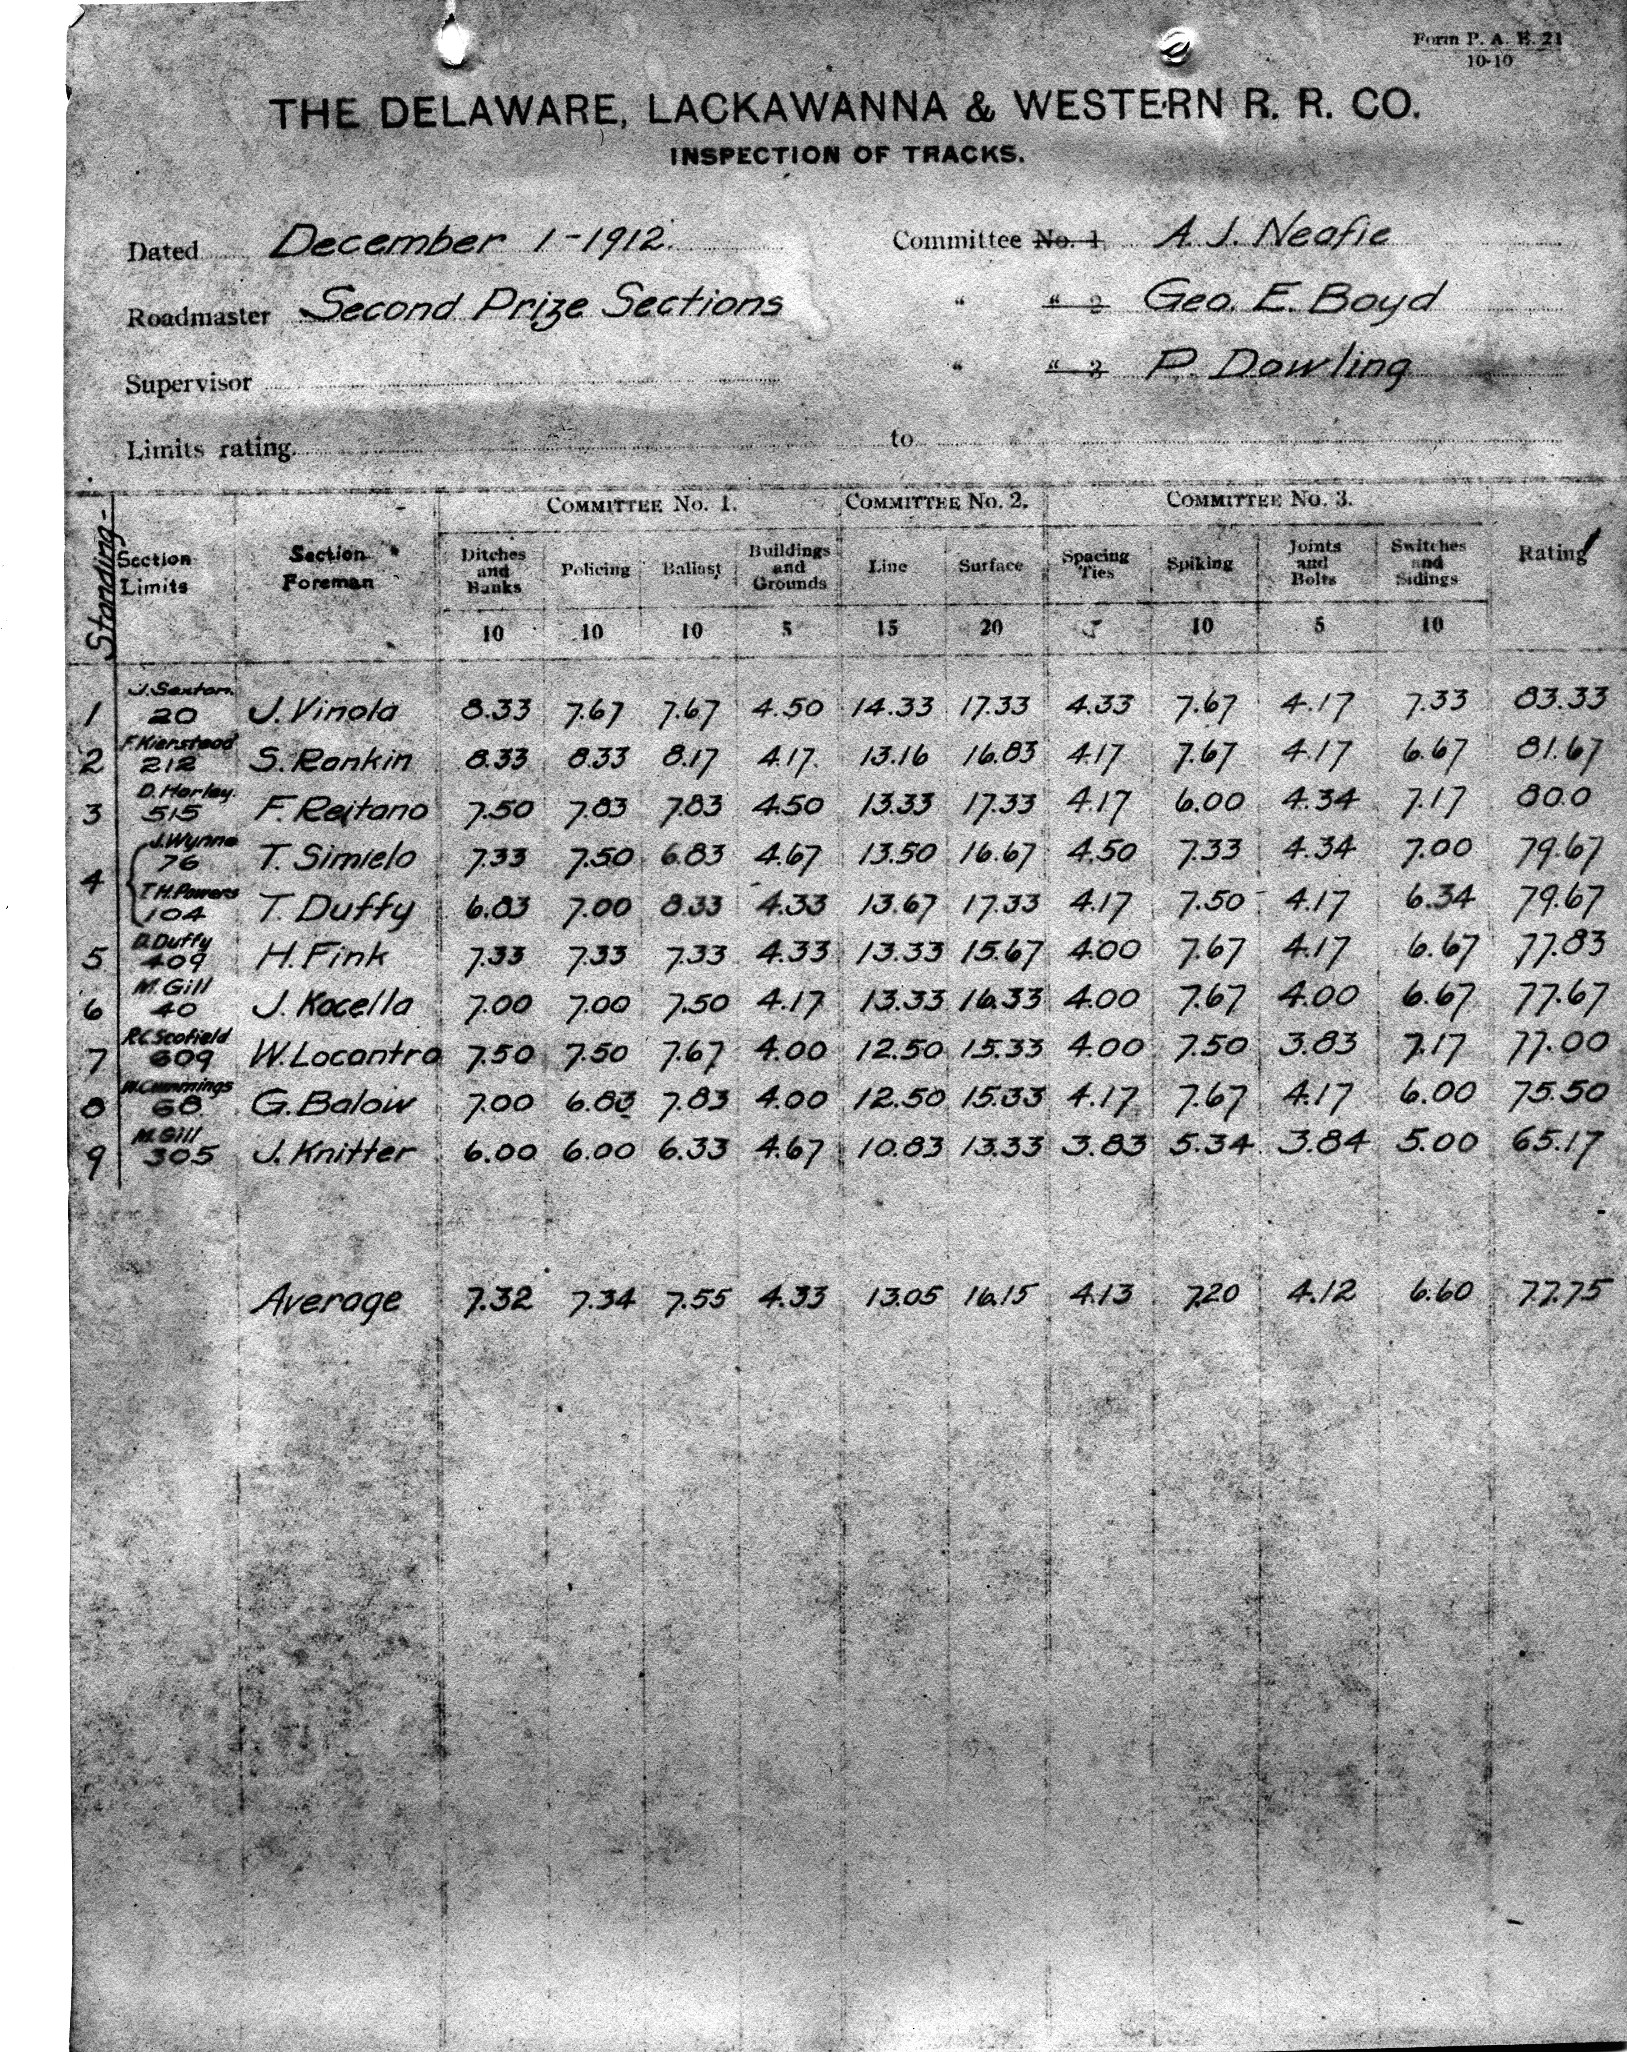 Form P. A. E. 21
10-10
THE DELAWARE, LACKAWANNA & WESTERN R. R. CO.
INSPECTION OF TRACKS.
Dated December 1-1912. Committee No. 1, A. J. Neafie
Roadmaster Second Prize Sections " " 2 Geo. E. Boyd
Supervisor " " 3 P. Dowling
Limits rating to
Standing- Section Limits Section Foreman COMMITTEE No. 1. COMMITTEE No. 2. COMMITTEE No. 3. Rating
Ditches and Banks Policing Ballast Buildings and Grounds Line Surface Spacing Ties Spiking Joints and Bolts Switches and Sidings
10 10 10 5 15 20 5 10 5 10
1 J. Saxton. 20 J. Vinola 8.33 7.67 7.67 4.50 14.33 17.33 4.33 7.67 4.17 7.33 83.33
2 F. Kierstead 212 S. Rankin 8.33 8.33 8.17 4.17. 13.16 16.83 4.17 7.67 4.17 6.67 81.67
3 D. Horley. 515 F. Reitano 7.50 7.83 7.83 4.50 13.33 17.33 4.17 6.00 4.34 7.17 80.0
4 J. Wynne 76 T. Simielo 7.33 7.50 6.83 4.67 13.50 16.67 4.50 7.33 4.34 7.00 79.67
T. H. Powers 104 T. Duffy 6.83 7.00 8.33 4.33 13.67 17.33 4.17 7.50 4.17 6.34 79.67
5 D. Duffy 409 H. Fink 7.33 7.33 7.33 4.33 13.33 15.67 4.00 7.67 4.17 6.67 77.83
6 M. Gill 40 J. Kocella 7.00 7.00 7.50 4.17 13.33 16.33 4.00 7.67 4.00 6.67 77.67
7 R.C. Scofield 609 W. Locantro 7.50 7.50 7.67 4.00 12.50 15.33 4.00 7.50 3.83 7.17 77.00
8 W. Cummings 68 G. Balow 7.00 6.83 7.83 4.00 12.50 15.33 4.17 7.67 4.17 6.00 75.50
9 M. Gill 305 J. Knitter 6.00 6.00 6.33 4.67 10.83 13.33 3.83 5.34 3.84 5.00 65.17
Average 7.32 7.34 7.55 4.33 13.05 16.15 4.13 7.20 4.12 6.60 77.75